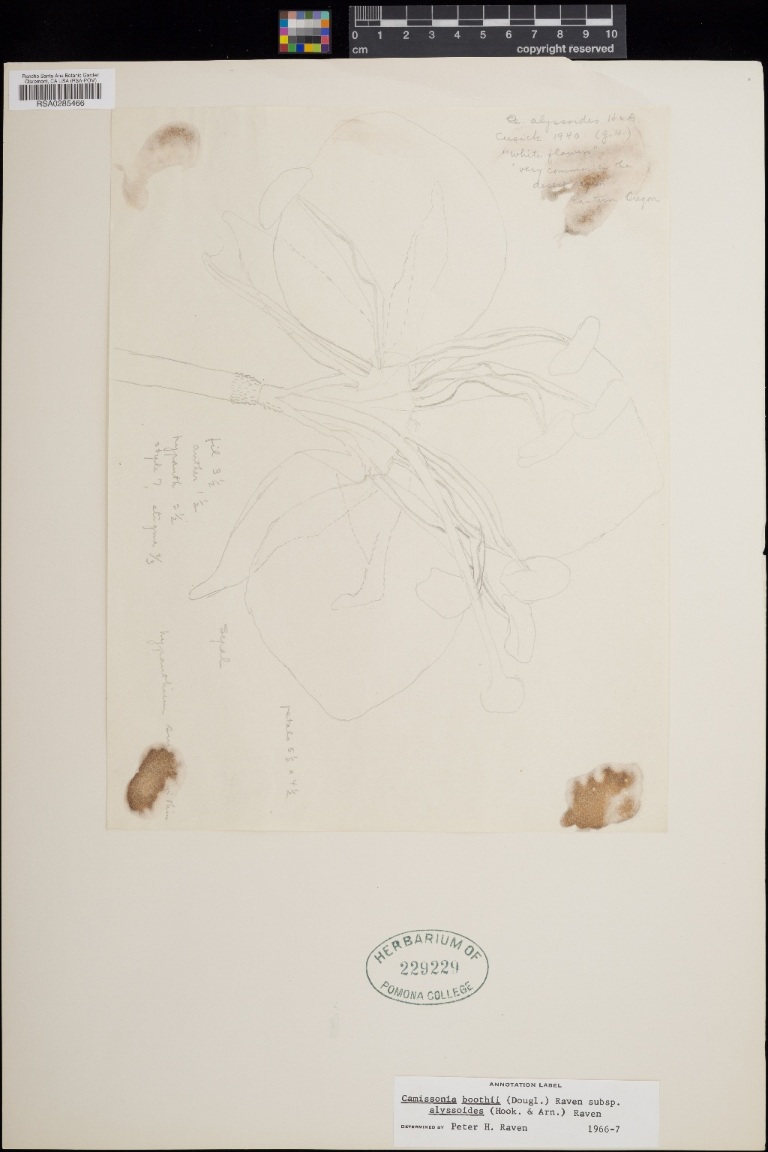 0 1 2 3 4 5 6 7 8 9 10
cm copyright reserved
Rancho Santa Ana Botanic Garden
Claremont, CA USA (RSA-POM)
RSA0285466
alyssoides H & A
Cusick 1940
"white flowers"
"very common in the
desert
Eastern Oregon
fil 3 ½
anther 1 ½
hypanth 2 ½
style 7, stigma ⅔
sepal
hypanthium
petals 5 ½ x 4 ½
HERBARIUM OF
229229
POMONA COLLEGE
ANNOTATION LABEL
Camissonia boothii (Dougl.) Raven subsp.
alyssoides (Hook. & Arn.) Raven
DETERMINED BY Peter H. Raven 1966-7